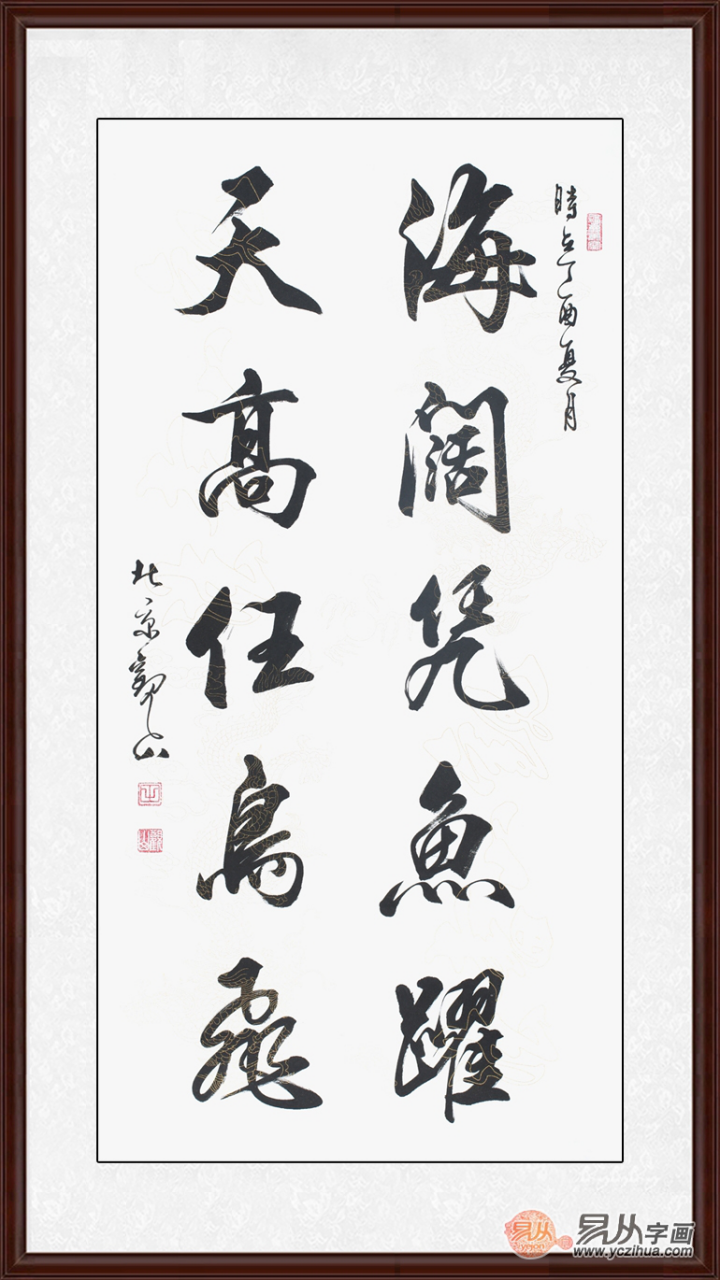 時在丁酉夏月
海闊凭魚躍
天高任鳥飛
北京觀山
易从字画
www.yczihua.com